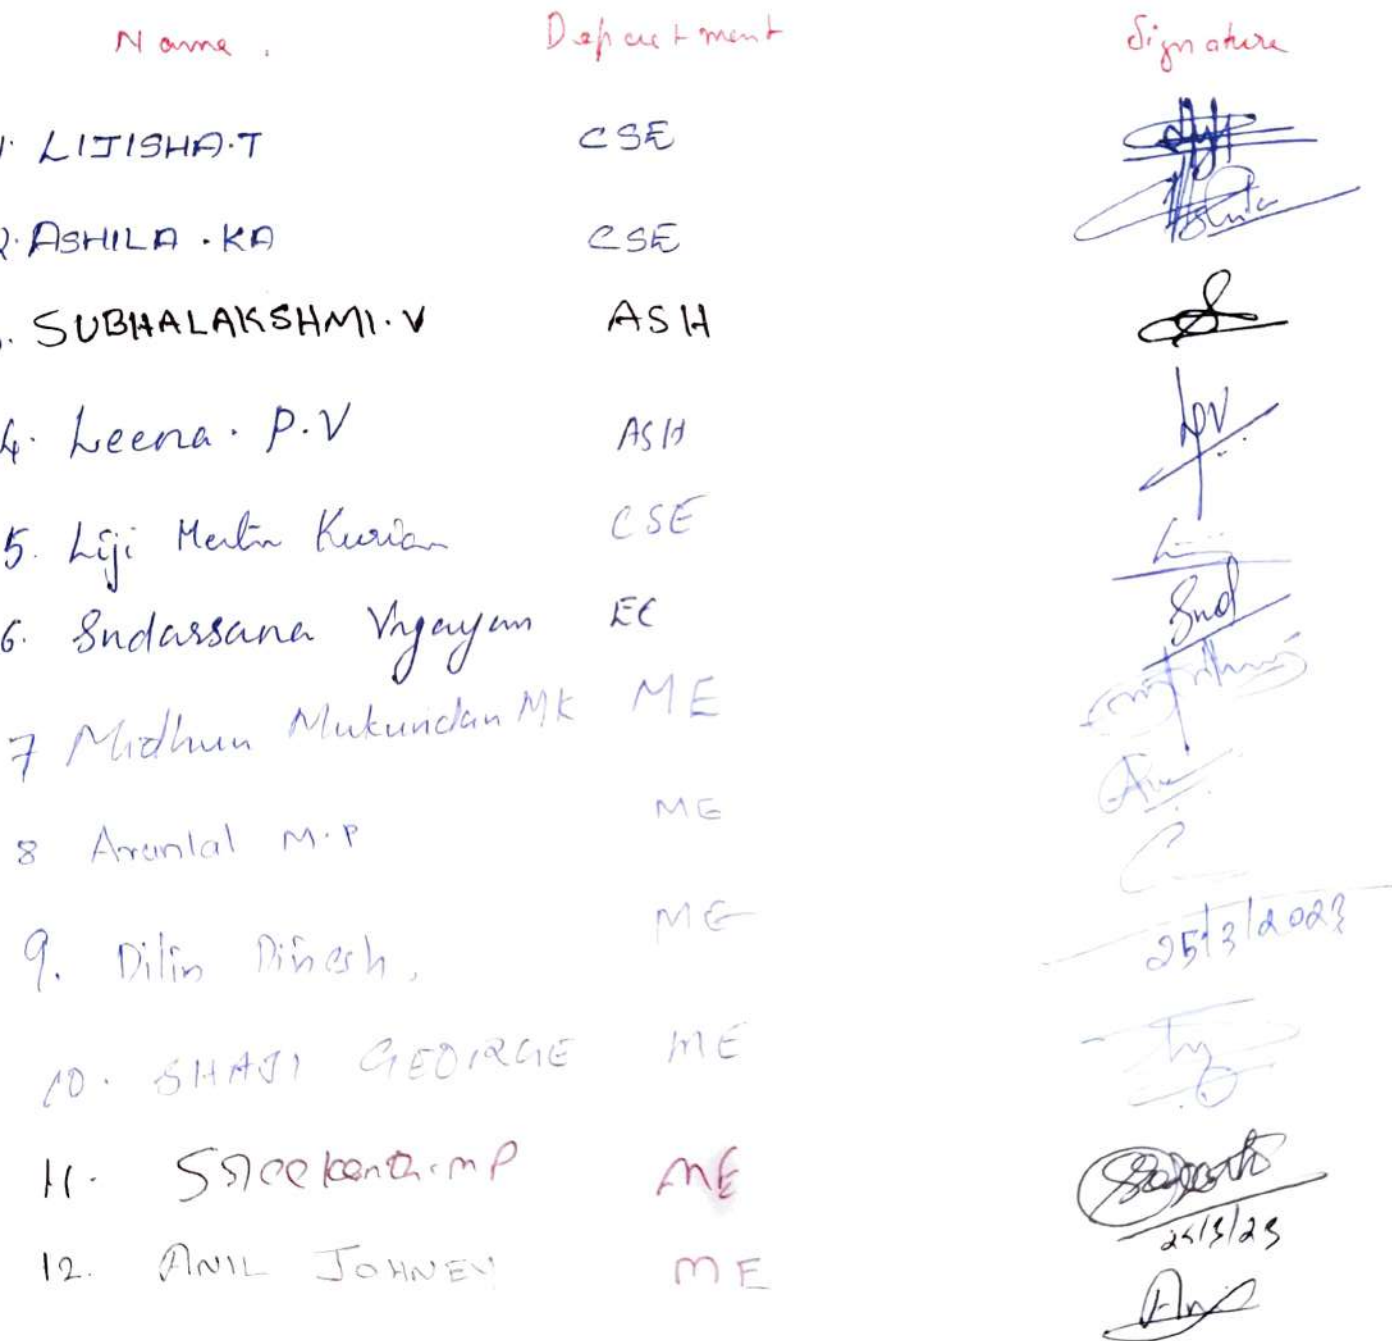 Name. Department Signature
1. LIJISHA.T CSE
2. ASHILA . KA CSE
3. SUBHALAKSHMI. V ASH
4. Leena. P.V ASH LPV
5. Liji Martin Kurian CSE
6. Sudarssana Vijayan EC Sud
7 Midhun Mukundan MK ME
8 Arunlal M.P ME
9. Dilin Dinesh, ME
25/3/2023
10. SHAJI GEORGE ME
11. Sreekanth.m P ME
25/3/23
12. ANIL JOHNEY ME Ani